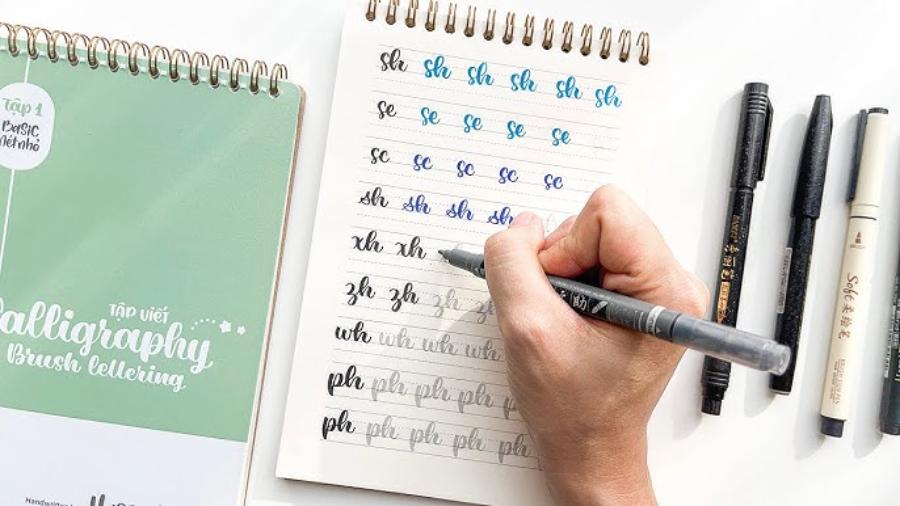 Tập 1
BASIC
Nét nhỏ
TẬP VIẾT
Calligraphy
Brush lettering
Handwritten
sh sh sh sh sh sh
se se se se se
sc sc sc sc sc
sh sh sh sh
xh xh
zh zh zh
wh wh wh wh
ph ph ph ph
ph ph ph ph ph
Soft